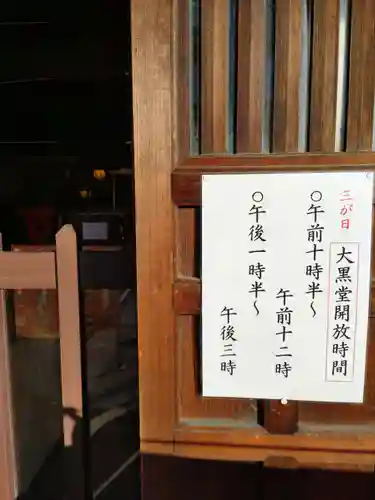 三が日
大黒堂開放時間
○午前十時半〜
午前十二時
○午後一時半〜
午後三時